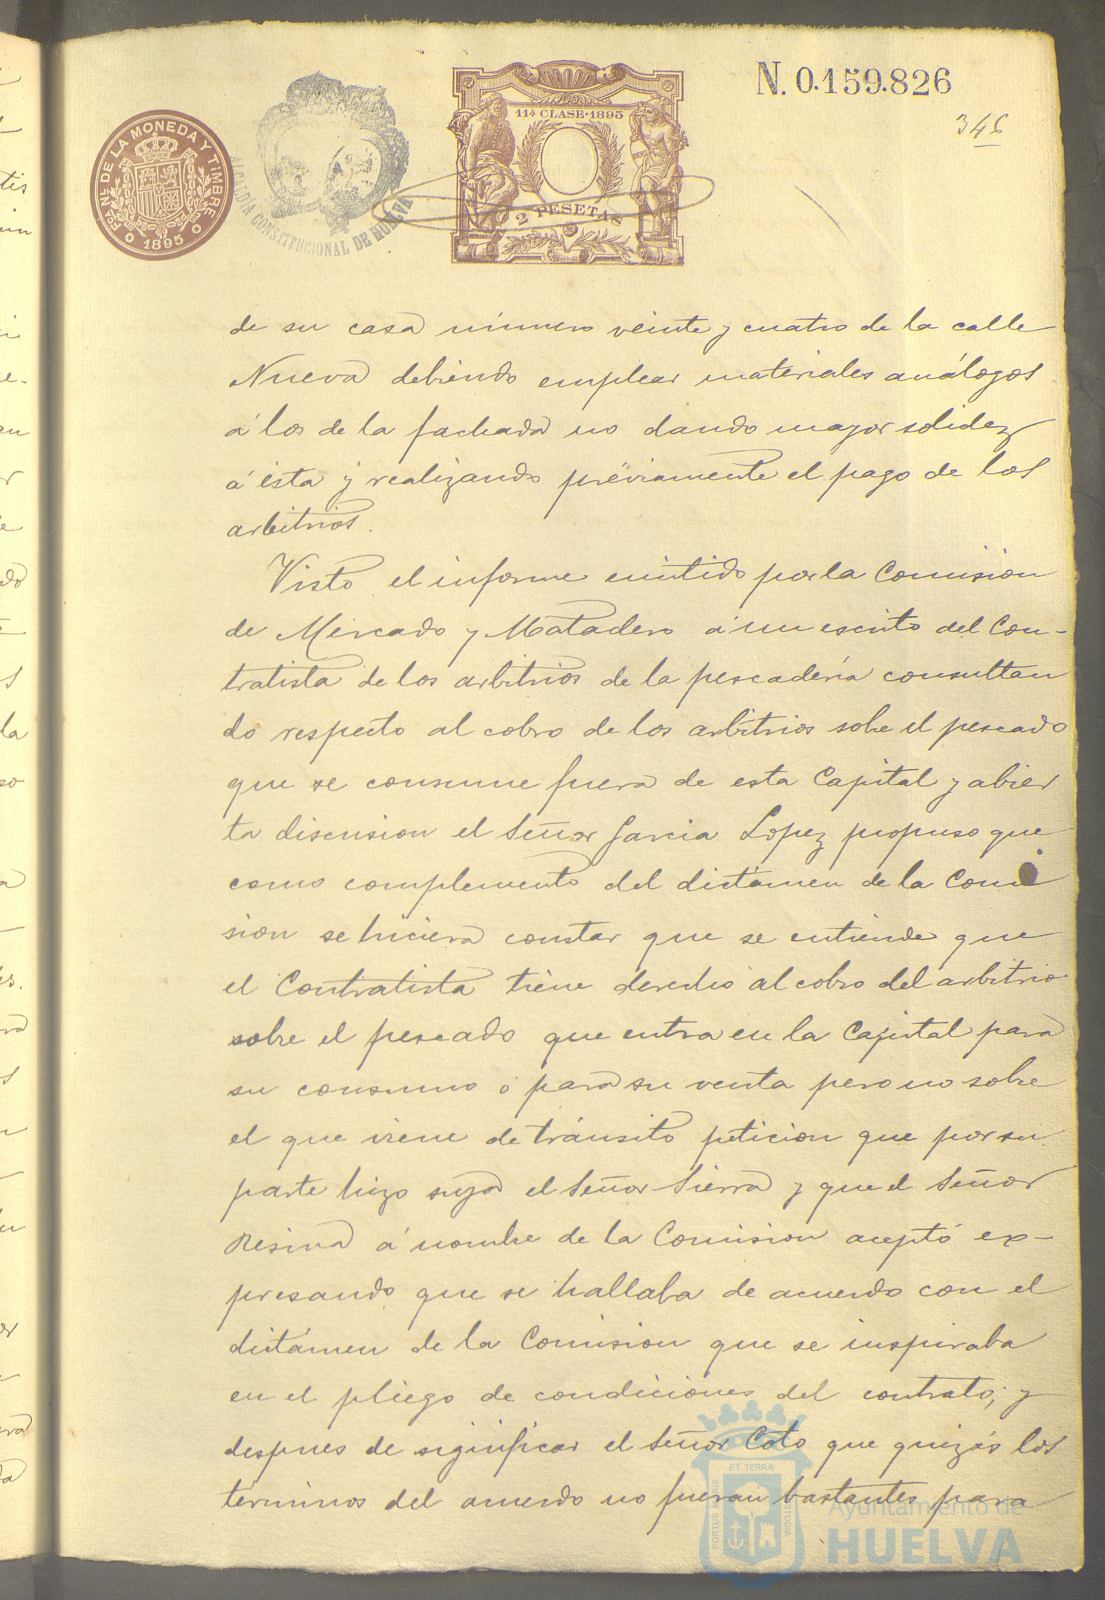 N. 0.159.826
346
FCA. NL. DE LA MONEDA Y TIMBRE
1895
ALCALDIA CONSTITUCIONAL DE HUELVA
11ª CLASE·1895
2 PESETAS
de su casa número veinte y cuatro de la calle
Nueva debiendo emplear materiales análogos
á los de la fachada no dando mayor solidez
á ésta y realizando préviamente el pago de los
arbitrios.
Visto el informe emitido por la Comisión
de Mercado y Matadero á un escrito del Con-
tratista de los arbitrios de la pescadería consultan
do respecto al cobro de los arbitrios sobre el pescado
que se consume fuera de esta Capital y abier
ta discusion el Señor Garcia Lopez propuso que
como complemento del dictámen de la Comi
sion se hiciera constar que se entiende que
el Contratista tiene derecho al cobro del arbitrio
sobre el pescado que entra en la Capital para
su consumo ó para su venta pero no sobre
el que viene de tránsito peticion que por su
parte hizo suya el Señor Sierra y que el Señor
Resina á nombre de la Comision aceptó ex-
presando que se hallaba de acuerdo con el
dictámen de la Comision que se inspiraba
en el pliego de condiciones del contrato; y
despues de significar el Señor Coto que quizás los
términos del acuerdo no fueran bastantes para
PORTUS MARIS
ET TERRÆ
CUSTODIA
Ayuntamiento de
HUELVA